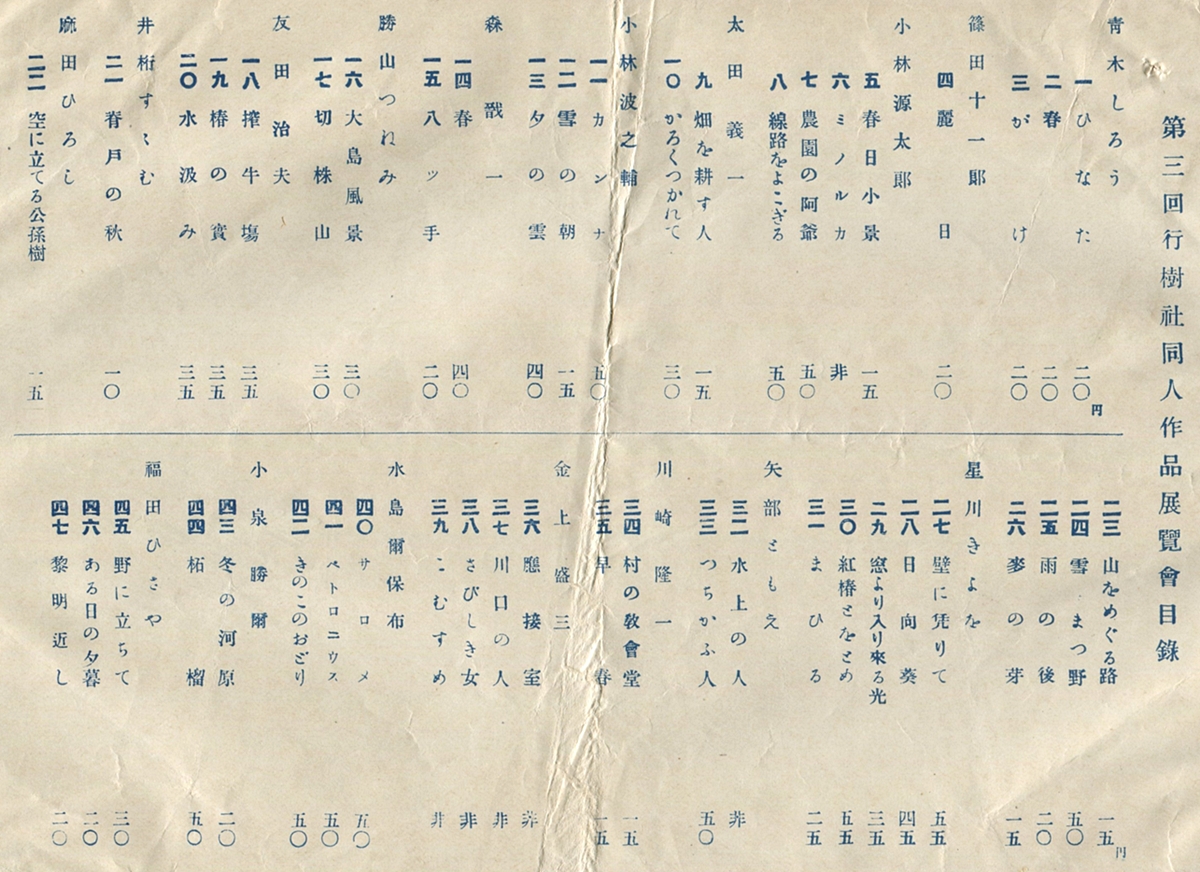 第三回行樹社同人作品展覽會目錄
青木しろう
一 ひなた 二〇円
二 春 二〇
三 がけ 二〇
篠田十一郎
四 麗日 二〇
小林源太郎
五 春日小景 一五
六 ミノルカ 非
七 農園の阿爺 五〇
八 線路をよこぎる 五〇
太田義一
九 畑を耕す人 一五
一〇 かろくつかれて 三〇
小林波之輔
一一 カンナ 五〇
一二 雪の朝 一五
一三 夕の雲 四〇
森戩一
一四 春 四〇
一五 八ッ手 二〇
勝山つねみ
一六 大島風景 三〇
一七 切株山 三〇
友田治夫
一八 搾牛塲 三五
一九 椿の實 三五
二〇 水汲み 三五
井桁すゝむ
二一 脊戸の秋 一〇
麻田ひろし
二二 空に立てる公孫樹 一五
二三 山をめぐる路 一五円
二四 雪まつ野 五〇
二五 雨の後 二〇
二六 麥の芽 一五
星川きよを
二七 壁に凭りて 五五
二八 日向葵 四五
二九 窓より入り來る光 三五
三〇 紅椿とをとめ 五五
三一 まひる 二五
矢部ともえ
三二 水上の人 非
三三 つちかふ人 五〇
川崎隆一
三四 村の敎會堂 一五
三五 早春 一五
金上盛三
三六 應接室 非
三七 川口の人 非
三八 さびしき女 非
三九 こむすめ 非
水島爾保布
四〇 サロメ 五〇
四一 ペトロニウス 五〇
四二 きのこのおどり 五〇
小泉勝爾
四三 冬の河原 二〇
四四 柘榴 五〇
福田ひさや
四五 野に立ちて 三〇
四六 ある日の夕暮 二〇
四七 黎明近し 二〇